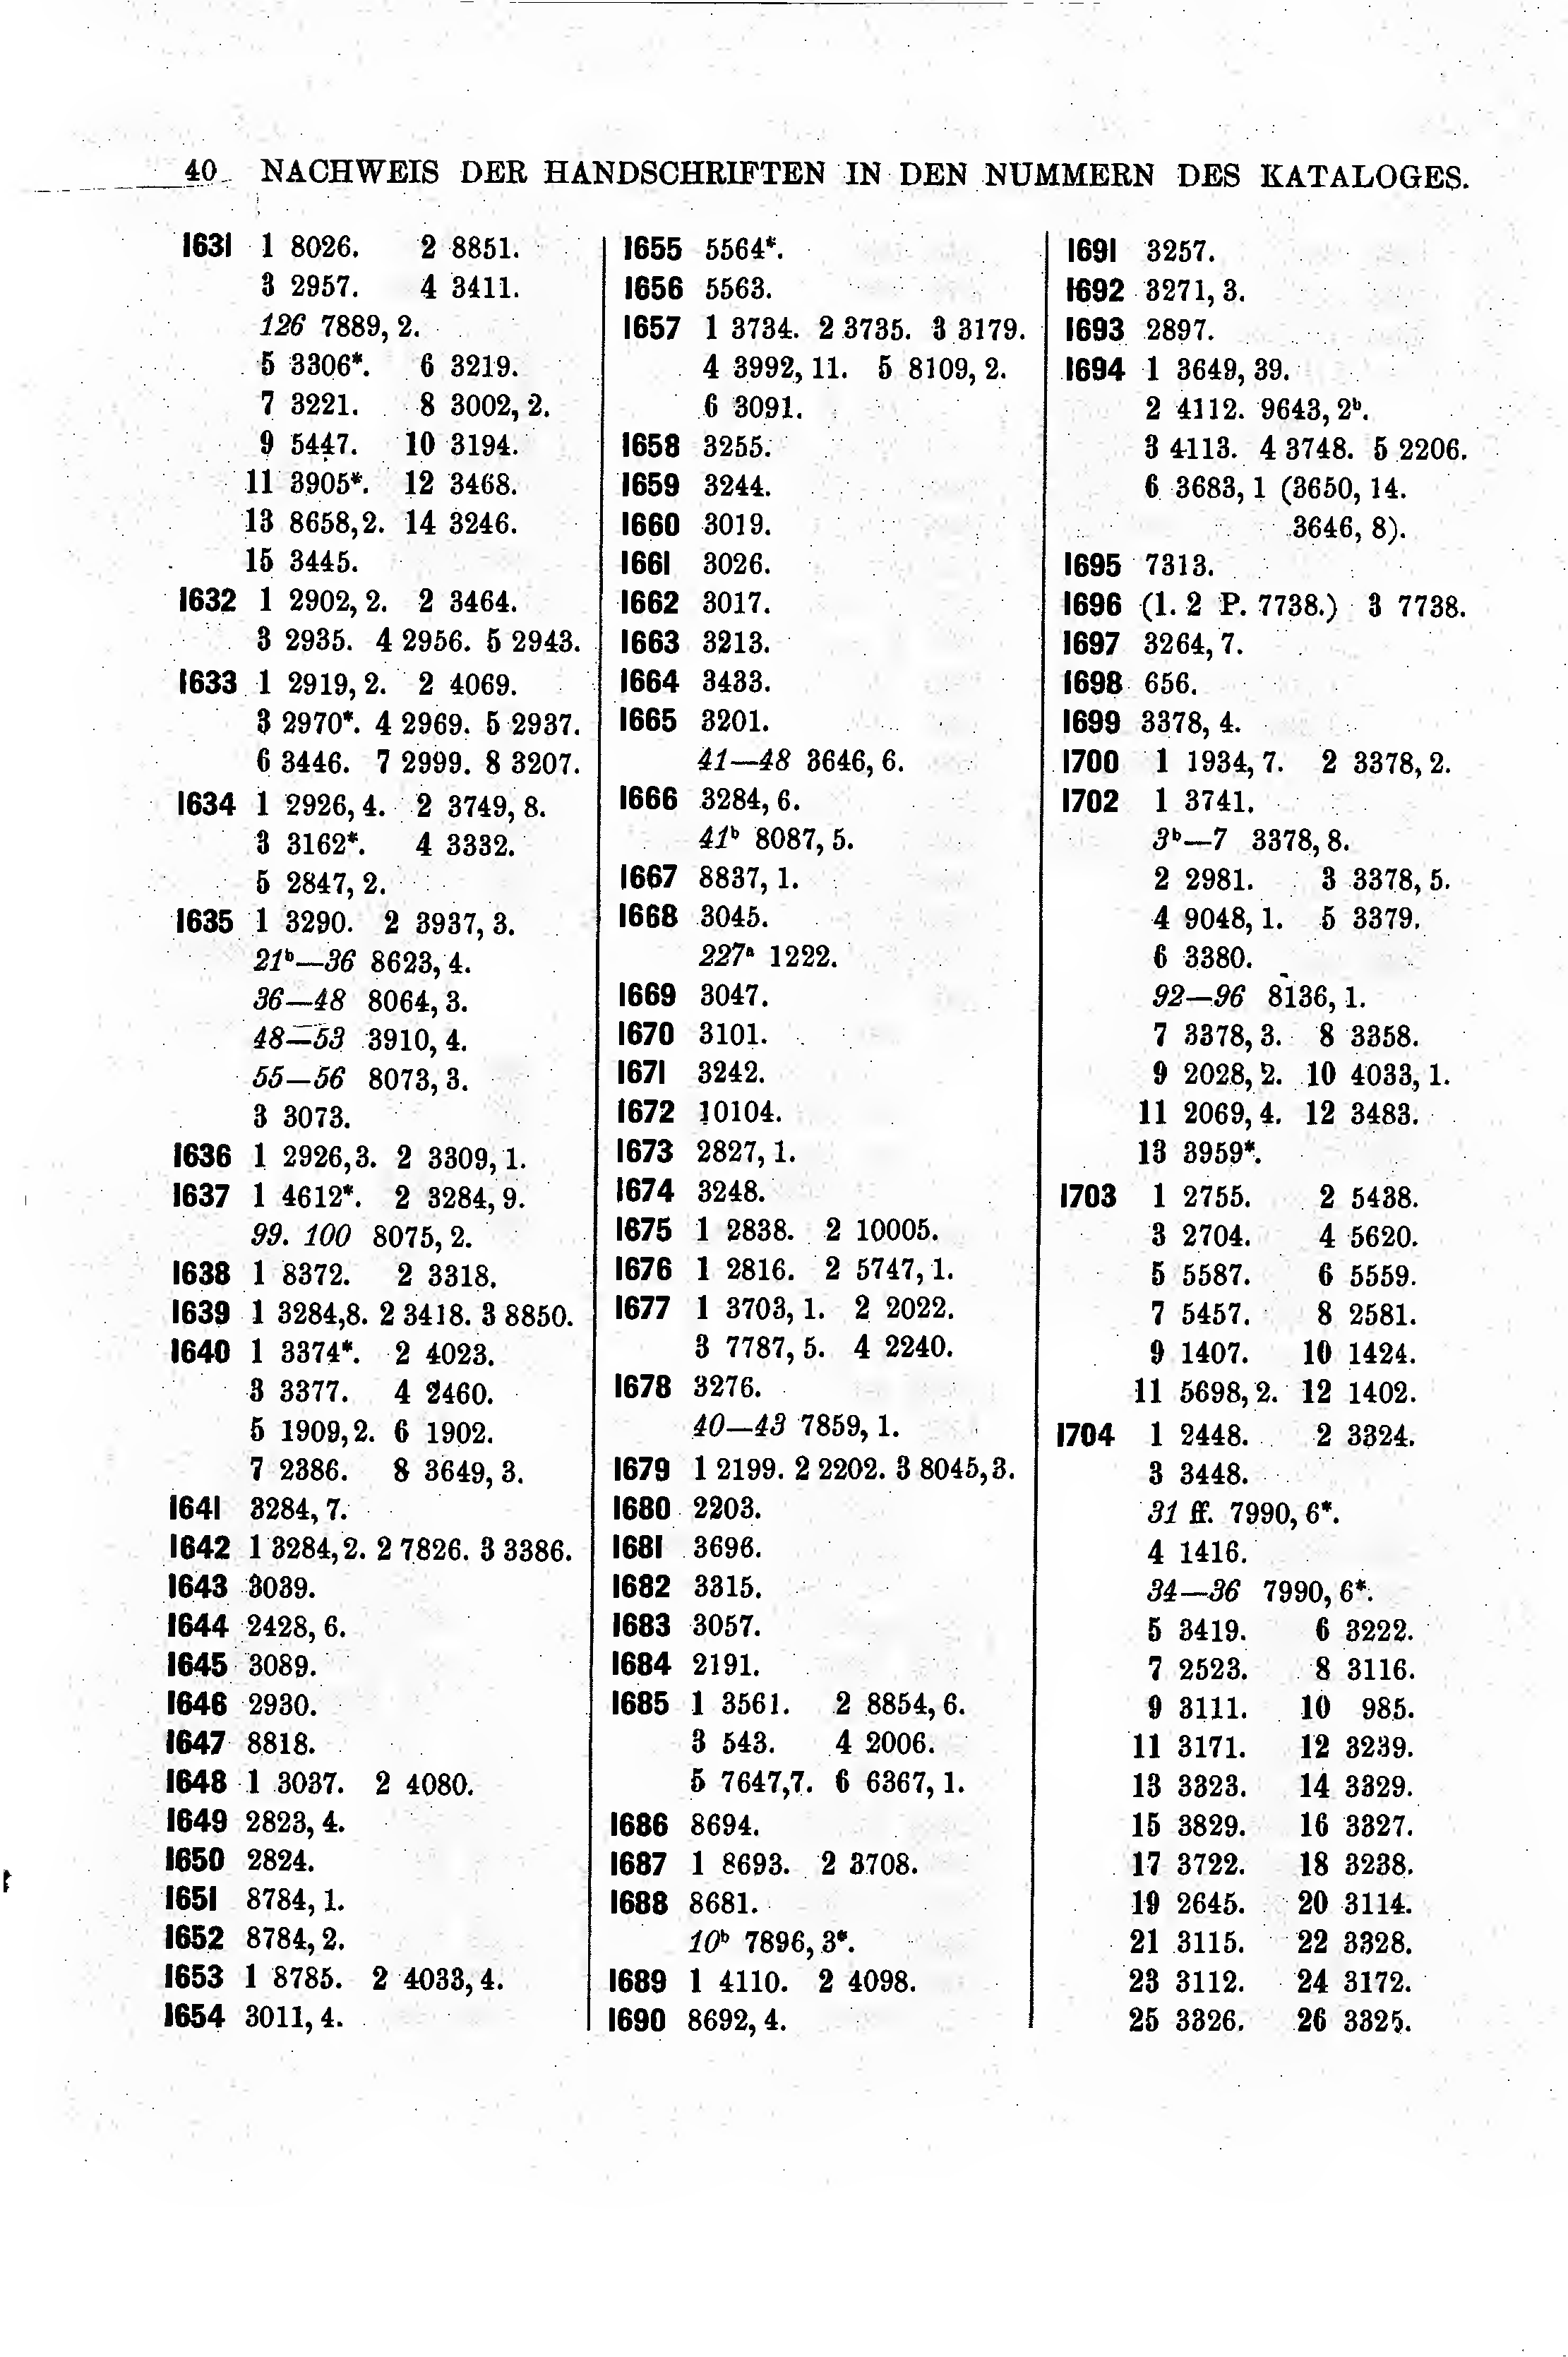 40 NACHWEIS DER HANDSCHRIFTEN IN DEN NUMMERN DES KATALOGES.
1631 1 8026. 2 8851.
3 2957. 4 3411.
126 7889, 2.
5 3306*. 6 3219.
7 3221. 8 3002, 2.
9 5447. 10 3194.
11 3905*. 12 3468.
13 8658, 2. 14 3246.
15 3445.
1632 1 2902, 2. 2 3464.
3 2935. 4 2956. 5 2943.
1633 1 2919, 2. 2 4069.
3 2970*. 4 2969. 5 2937.
6 3446. 7 2999. 8 3207.
1634 1 2926, 4. 2 3749, 8.
3 3162*. 4 3332.
5 2847, 2.
1635 1 3290. 2 3937, 3.
21ᵇ—36 8623, 4.
36—48 8064, 3.
48—53 3910, 4.
55—56 8073, 3.
3 3073.
1636 1 2926, 3. 2 3309, 1.
1637 1 4612*. 2 3284, 9.
99. 100 8075, 2.
1638 1 8372. 2 3318.
1639 1 3284, 8. 2 3418. 3 8850.
1640 1 3374*. 2 4023.
3 3377. 4 2460.
5 1909, 2. 6 1902.
7 2386. 8 3649, 3.
1641 3284, 7.
1642 1 3284, 2. 2 7826. 3 3386.
1643 3039.
1644 2428, 6.
1645 3089.
1646 2930.
1647 8818.
1648 1 3037. 2 4080.
1649 2823, 4.
1650 2824.
1651 8784, 1.
1652 8784, 2.
1653 1 8785. 2 4033, 4.
1654 3011, 4.
1655 5564*.
1656 5563.
1657 1 3734. 2 3735. 3 3179.
4 3992, 11. 5 8109, 2.
6 3091.
1658 3255.
1659 3244.
1660 3019.
1661 3026.
1662 3017.
1663 3213.
1664 3433.
1665 3201.
41—48 3646, 6.
1666 3284, 6.
41ᵇ 8087, 5.
1667 8837, 1.
1668 3045.
227ᵃ 1222.
1669 3047.
1670 3101.
1671 3242.
1672 10104.
1673 2827, 1.
1674 3248.
1675 1 2838. 2 10005.
1676 1 2816. 2 5747, 1.
1677 1 3703, 1. 2 2022.
3 7787, 5. 4 2240.
1678 3276.
40—43 7859, 1.
1679 1 2199. 2 2202. 3 8045, 3.
1680 2203.
1681 3696.
1682 3315.
1683 3057.
1684 2191.
1685 1 3561. 2 8854, 6.
3 543. 4 2006.
5 7647, 7. 6 6367, 1.
1686 8694.
1687 1 8693. 2 3708.
1688 8681.
10ᵇ 7896, 3*.
1689 1 4110. 2 4098.
1690 8692, 4.
1691 3257.
1692 3271, 3.
1693 2897.
1694 1 3649, 39.
2 4112. 9643, 2ᵇ.
3 4113. 4 3748. 5 2206.
6 3683, 1 (3650, 14.
3646, 8).
1695 7313.
1696 (1. 2 P. 7738.) 3 7738.
1697 3264, 7.
1698 656.
1699 3378, 4.
1700 1 1934, 7. 2 3378, 2.
1702 1 3741.
3ᵇ—7 3378, 8.
2 2981. 3 3378, 5.
4 9048, 1. 5 3379.
6 3380.
92—96 8136, 1.
7 3378, 3. 8 3358.
9 2028, 2. 10 4033, 1.
11 2069, 4. 12 3483.
13 3959*.
1703 1 2755. 2 5438.
3 2704. 4 5620.
5 5587. 6 5559.
7 5457. 8 2581.
9 1407. 10 1424.
11 5698, 2. 12 1402.
1704 1 2448. 2 3324.
3 3448.
31 ff. 7990, 6*.
4 1416.
34—36 7990, 6*.
5 3419. 6 3222.
7 2523. 8 3116.
9 3111. 10 985.
11 3171. 12 3239.
13 3323. 14 3329.
15 3829. 16 3327.
17 3722. 18 3238.
19 2645. 20 3114.
21 3115. 22 3328.
23 3112. 24 3172.
25 3326. 26 3325.